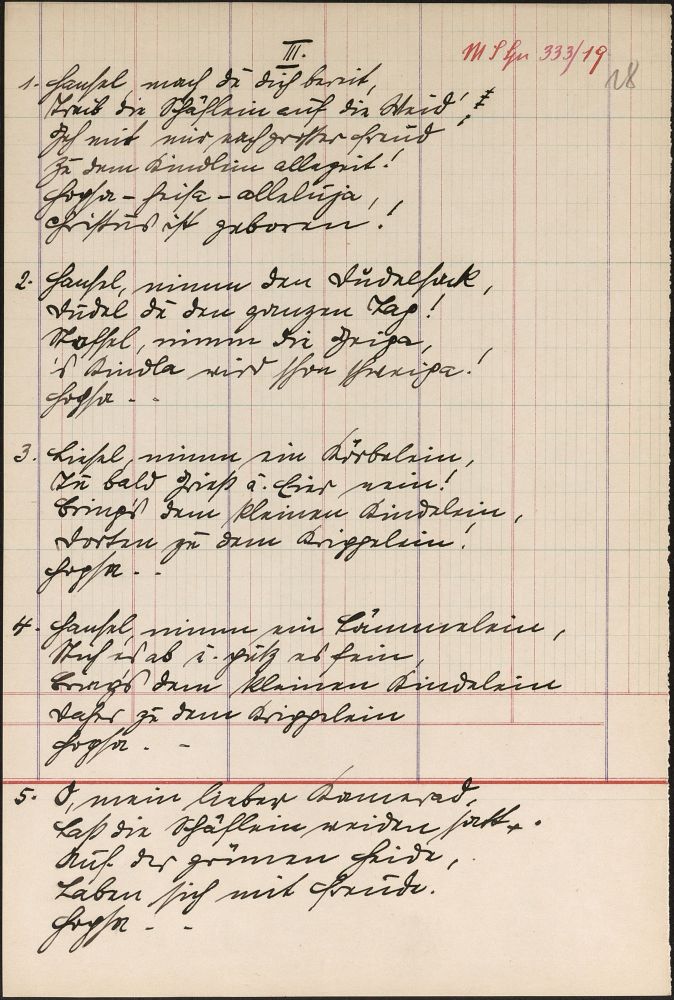 III.
M S Gu 333/19
28
1. Hansel mach du dich bereit,
Treib die Schäflein auf die Weid'!
Geh mit mir, nach grosser Freud
Zu dem Kindlein allezeit!
Hopsa - heisa - alleluja,
Christus ist geboren!
2. Hansel, nimm den Dudelsack,
Dudel du den ganzen Tag!
Stoffel, nimm die Geiga,
's Kindla wird schon schweiga!
Hopsa - -
3. Liesel, nimm ein Körbelein,
Tu bald Grieß u. Eier nein!
Bring's dem kleinen Kindelein,
Dorten zu dem Krippelein!
Hopsa - -
4. Hansel, nimm ein Lämmelein,
Stich es ab u. putz es fein,
Bring's dem kleinen Kindelein
Daher zu dem Krippelein
Hopsa. -
5. O, mein lieber Kamerad,
Laß die Schäflein weiden satt.
Auf der grünen Heide,
Laben sich mit Freude.
Hopsa - -